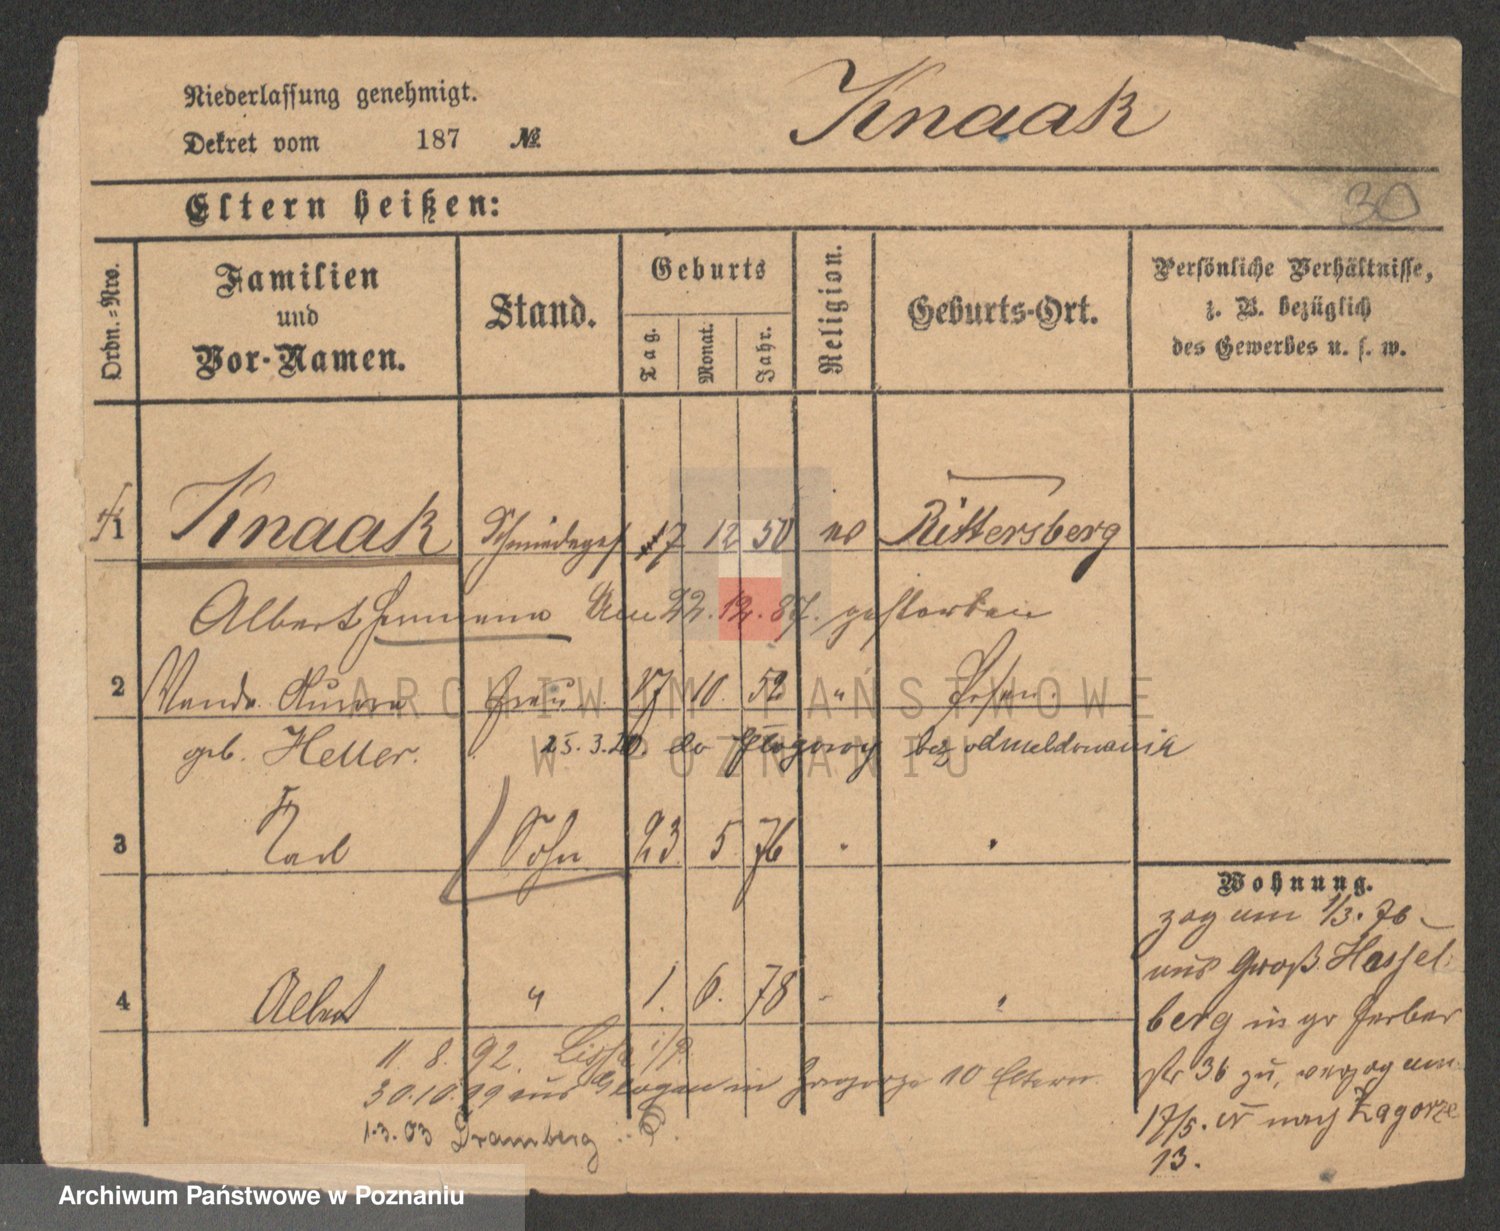 Niederlassung genehmigt.
Dekret vom 187 №
Knaak
30
Eltern heißen:
Ordn.=Nro.
Familien
und
Vor-Namen.
Stand.
Geburts
Tag.
Monat.
Jahr.
Religion.
Geburts-Ort.
Persönliche Verhältnisse,
z. B. bezüglich
des Gewerbes u. s. w.
1 Knaak Schmiedeges 17 12 50 Rittersberg
Albert Hermann Am 22.12.87. gestorben
2 Wanda Frau 17 10. 52 " Posen.
geb. Heller. 25.3.20. do Głogowy bez odmeldowania
3 Karl Sohn 23 5 76 "
4 Albert " 1. 6. 78 -
11 8. 92. Lissa i/P.
30.10.19 aus Glogau in Zagorze 10 Eltern
1.3.03 Dramberg
Wohnung.
zog am 1/3. 76
aus Groß Hassel-
berg in gr Gerber
str 36 zu, verzog am
17/5. nach Zagorze
13.
ARCHIWUM PAŃSTWOWE
W POZNANIU
Archiwum Państwowe w Poznaniu